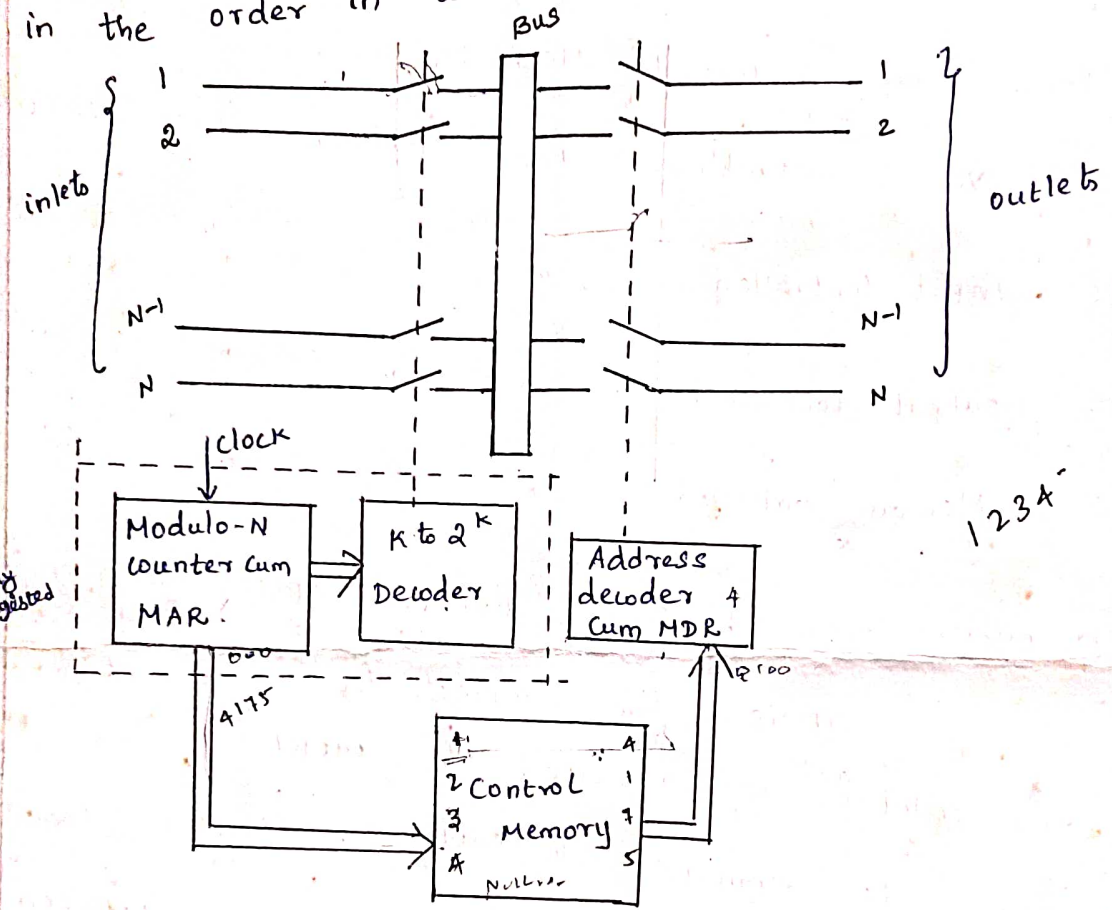 in the order in
Bus
1
2
inlets
N-1
N
1
2
outlets
N-1
N
clock
Modulo-N
counter cum
MAR.
K to 2^K
Decoder
Address
decoder 4
cum MDR
1234
gested
000
4175
0100
1 4
2 Control 1
3 Memory 7
4 5